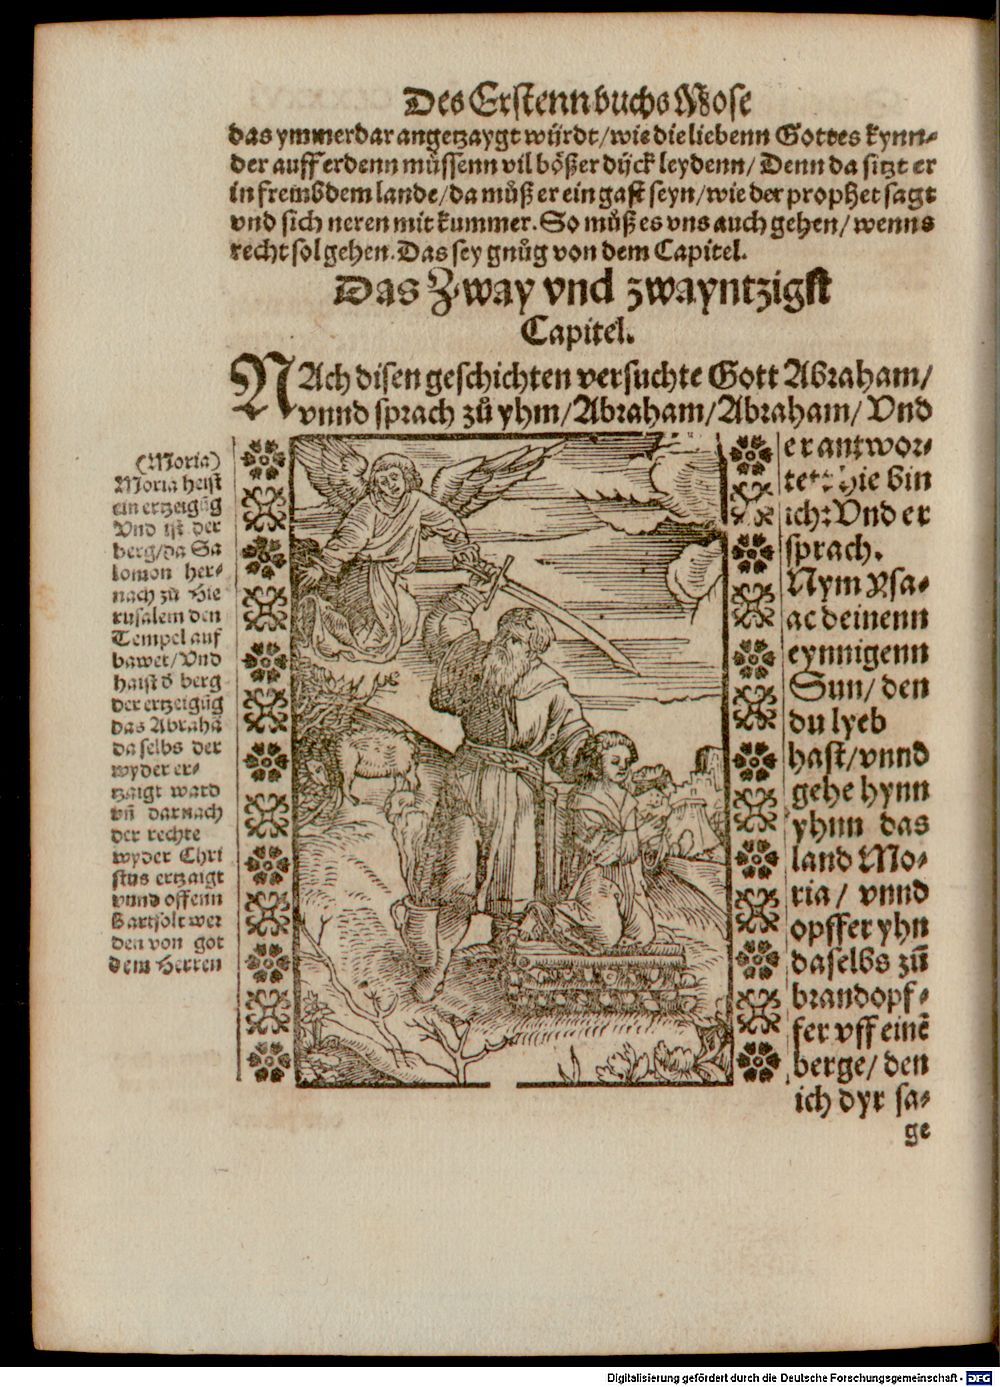 Des Erstenn buchs Mose
das ymmerdar angetzaygt würdt/wie die liebenn Gottes kynn⸗
der auff erdenn müssenn vil bößer dück leydenn/ Denn da sitzt er
in frembdem lande/da můß er ein gast seyn/wie der prophet sagt
vnd sich neren mit kummer. So můß es vns auch gehen/wenns
recht sol gehen. Das sey gnůg von dem Capitel.
Das Zway vnd zwayntzigst
Capitel.
NAch disen geschichten versuchte Gott Abraham/
vnnd sprach zů yhm/Abraham/Abraham/ Vnd
er antwor⸗
tet: Hie bin
ich: Vnd er
sprach.
Nym Ysa⸗
ac deinenn
eynnigenn
Sun/ den
du lyeb
hast/vnnd
gehe hynn
yhnn das
land Mo⸗
ria/ vnnd
opffer yhn
daselbs zů
brandopf⸗
fer vff einē
berge/ den
ich dyr sa⸗
ge
(Moria)
Moria heist
ein ertzeigūg
Vnd ist der
berg/da Sa
lomon her⸗
nach zů Hie
rusalem den
Tempel auf
bawet/Vnd
haist d̄ berg
der ertzeigūg
das Abrahā
daselbs der
wyder er⸗
tzaigt ward
vn̄ darnach
der rechte
wyder Chri
stus ertzaigt
vnnd offenn
bart solt wer
den von got
dem Herren
Digitalisierung gefördert durch die Deutsche Forschungsgemeinschaft - DFG